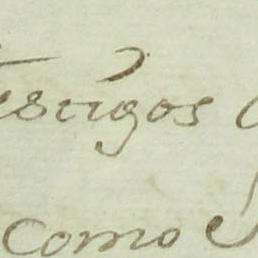 testigos
como